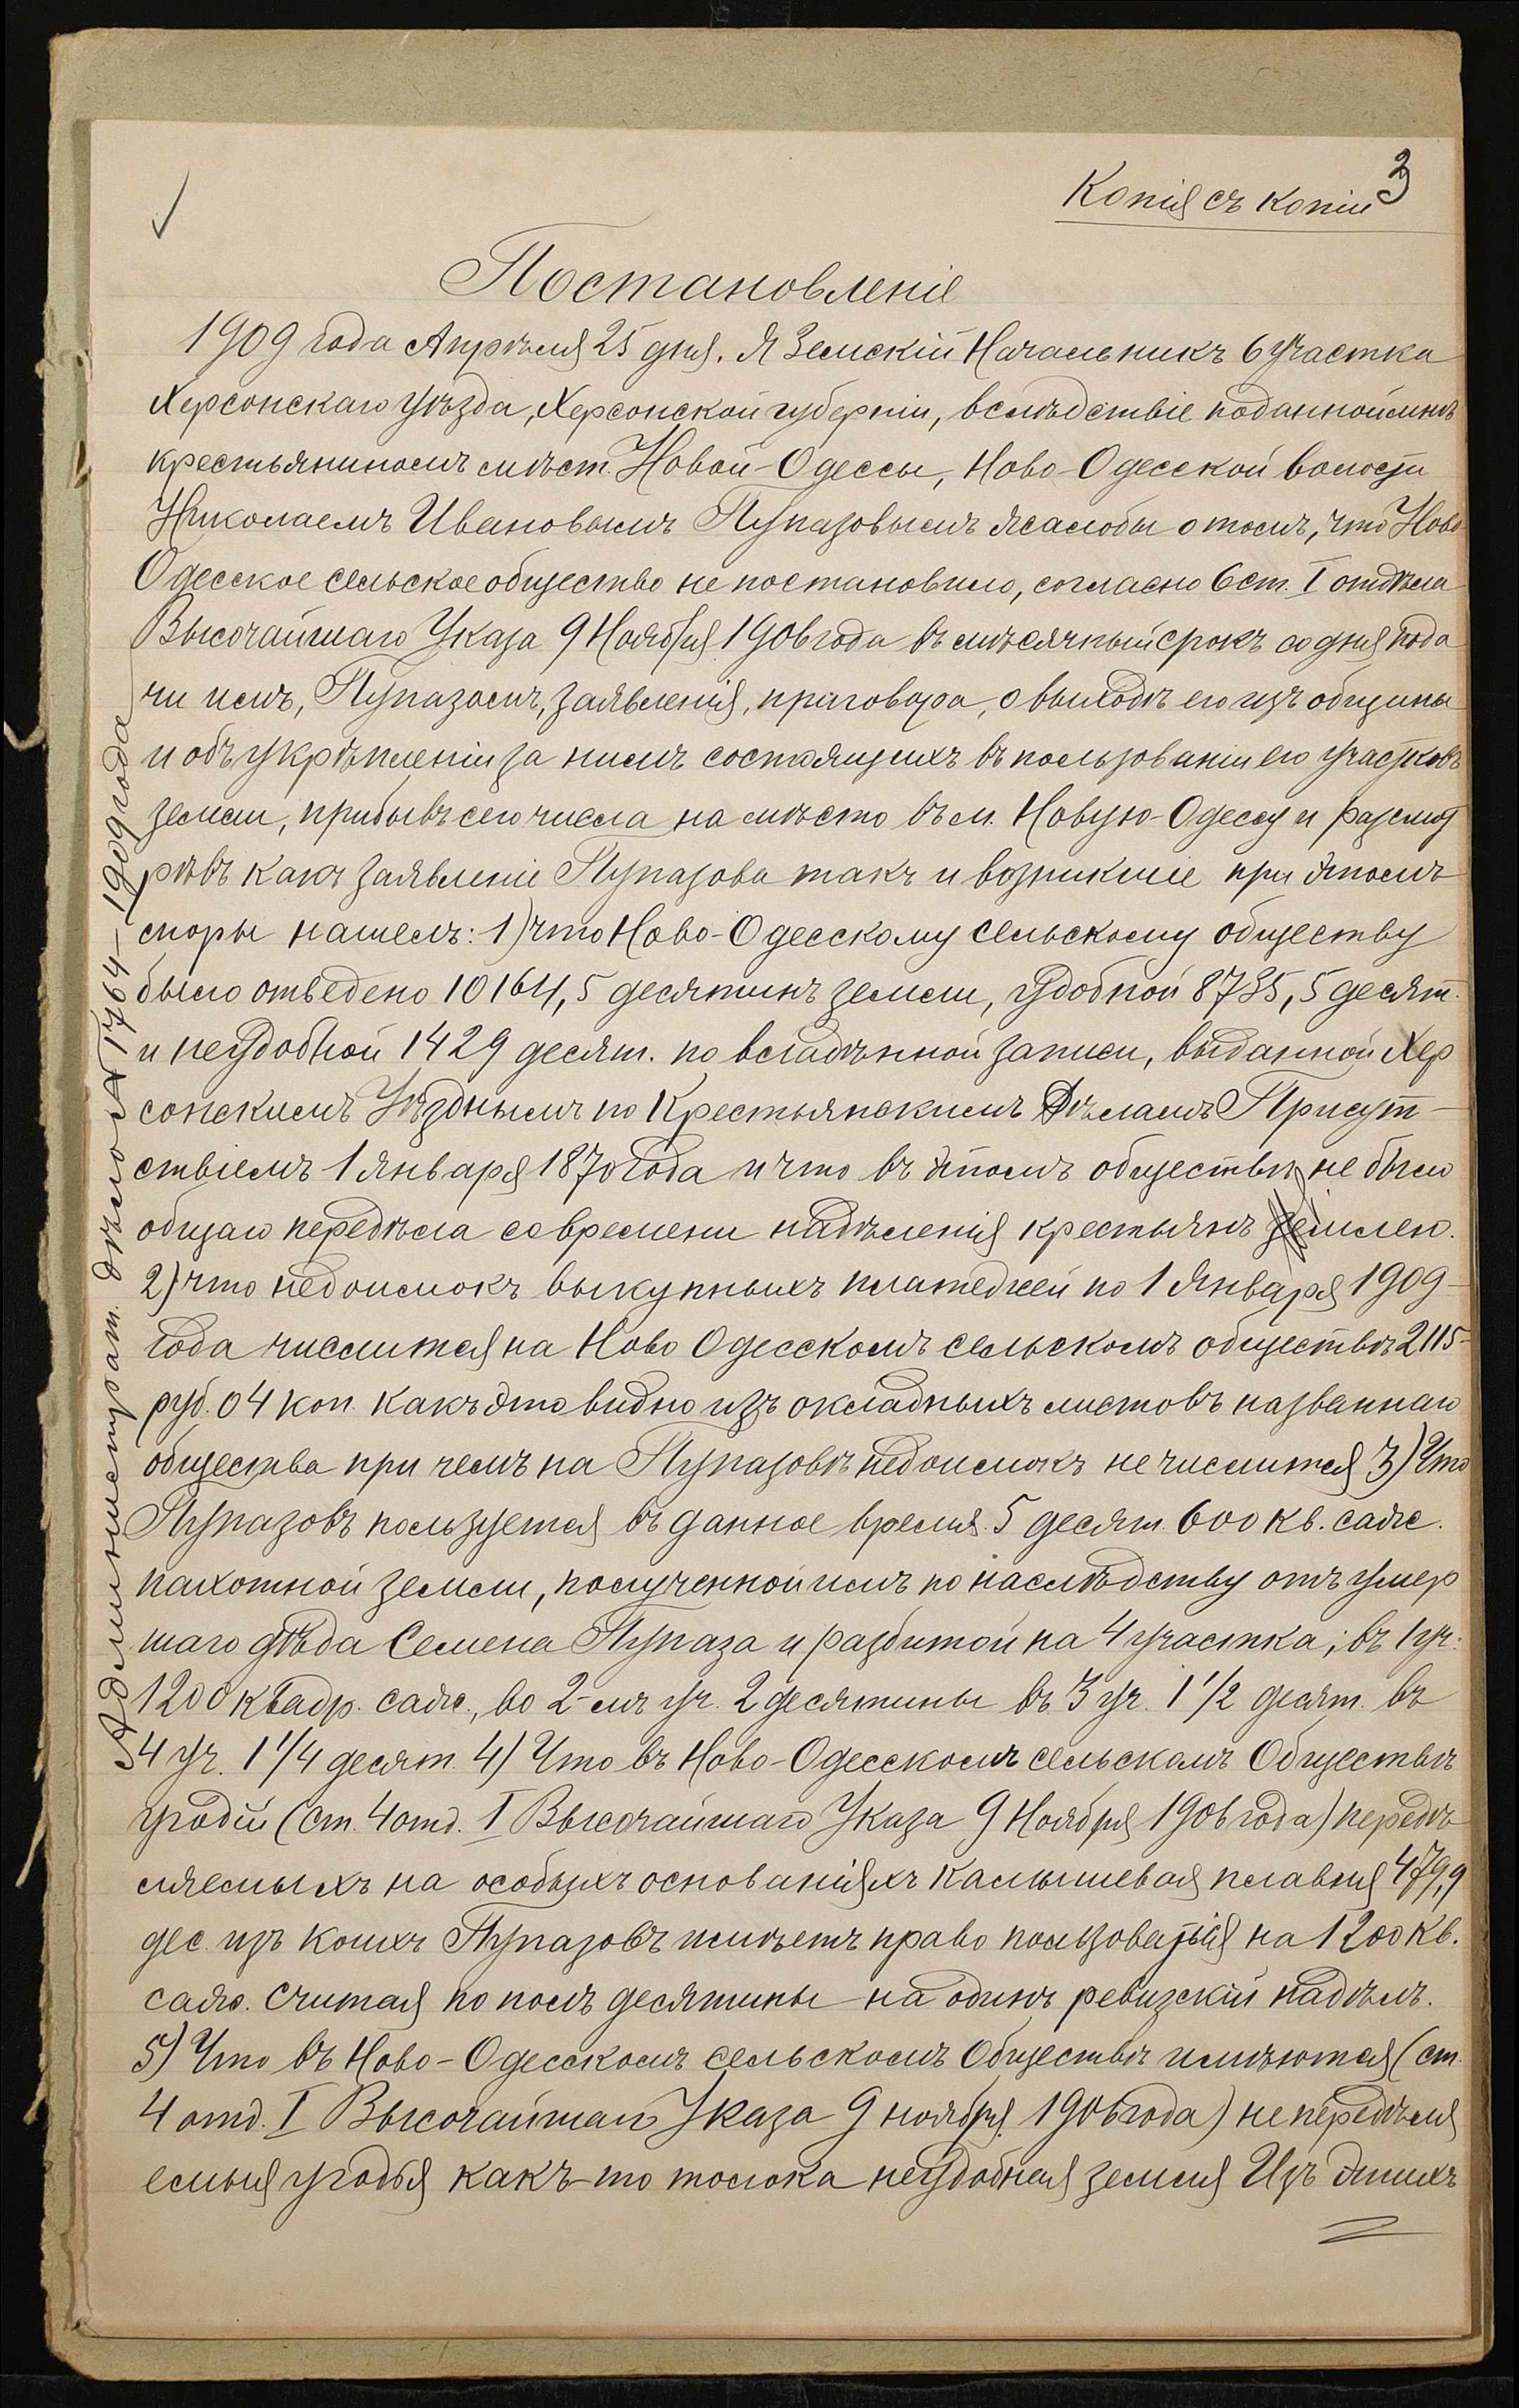 Копія съ копіи
3
Постановленіе
1909 года Апрѣля 25 дня. Я Земскій Начальникъ 6 участка
Херсонскаго уѣзда, Херсонской губерніи, вслѣдствіе поданной мнѣ
крестьяниномъ мѣст. Новой-Одессы, Ново-Одесской волости
Николаемъ Ивановымъ Пупазовымъ жалобы о томъ, что Ново
Одесское сельское общество не постановило, согласно 6 ст. I отдѣла
Высочайшаго Указа 9 Ноября 1906 года въ мѣсячный срокъ со дня пода
чи имъ, Пупазомъ, заявленія, приговора, о выходѣ его изъ общины
и объ укрѣпленіи за нимъ состоящихъ въ пользованіи его участковъ
земли, прибывъ сего числа на мѣсто въ м. Новую-Одессу и разсмот
рѣвъ какъ заявленіе Пупазова такъ и возникшіе при этомъ
споры нашелъ: 1) что Ново-Одесскому сельскому обществу
было отведено 10164,5 десятинъ земли, удобной 8735,5 десят.
и неудобной 1429 десят. по владѣнной записи, выданной Хер
сонскимъ Уѣзднымъ по Крестьянскимъ Дѣламъ Присут-
ствіемъ 1 Января 1870 года и что въ этомъ обществѣ не было
общаго передѣла со времени надѣленія крестьянъ землею.
2) что недоимокъ выкупныхъ платежей по 1 Января 1909-
года числится на Ново Одесскомъ сельскомъ обществѣ 2115-
руб. 04 коп. какъ это видно изъ окладныхъ листовъ названнаго
общества при чемъ на Пупазовѣ недоимокъ не числится 3) Что
Пупазовъ пользуется въ данное время 5 десят. 600 кв. саж.
пахотной земли, полученной имъ по наслѣдству отъ умер
шаго дѣда Семена Пупаза и разбитой на 4 участка; въ 1 уч.
1200 квадр. саж., во 2-мъ уч. 2 десятины въ 3 уч. 1 1/2 десят. въ
4 уч. 1 1/4 десят. 4) Что въ Ново-Одесскомъ сельскомъ Обществѣ
угодій (ст. 4 отд. I Высочайшаго Указа 9 Ноября 1906 года) передѣ
ляемыхъ на особыхъ основаніяхъ камышевая плавня 479,9
дес. изъ коихъ Пупазовъ имѣетъ право пользованія на 1200 кв.
саж. считая по полъ десятины на одинъ ревизскій надѣлъ.
5) Что въ Ново-Одесскомъ сельскомъ Обществѣ имѣются (ст.
4 отд. I Высочайшаго Указа 9 ноября 1906 года) не передѣля
емыя угодья какъ-то толока неудобная земля Изъ этихъ
Административ. дѣло № 1764-1909 года